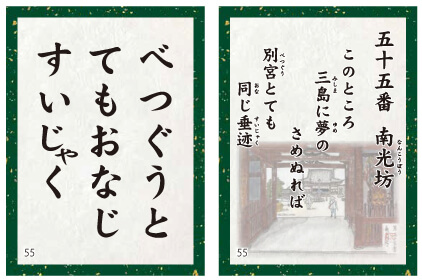 べつぐうと
てもおなじ
すいじゃく
55
五十五番 南光坊
なんこうぼう
このところ
三島に夢の
みしま ゆめ
さめぬれば
別宮とても
べつぐう
同じ垂迹
おな すいじゃく
55